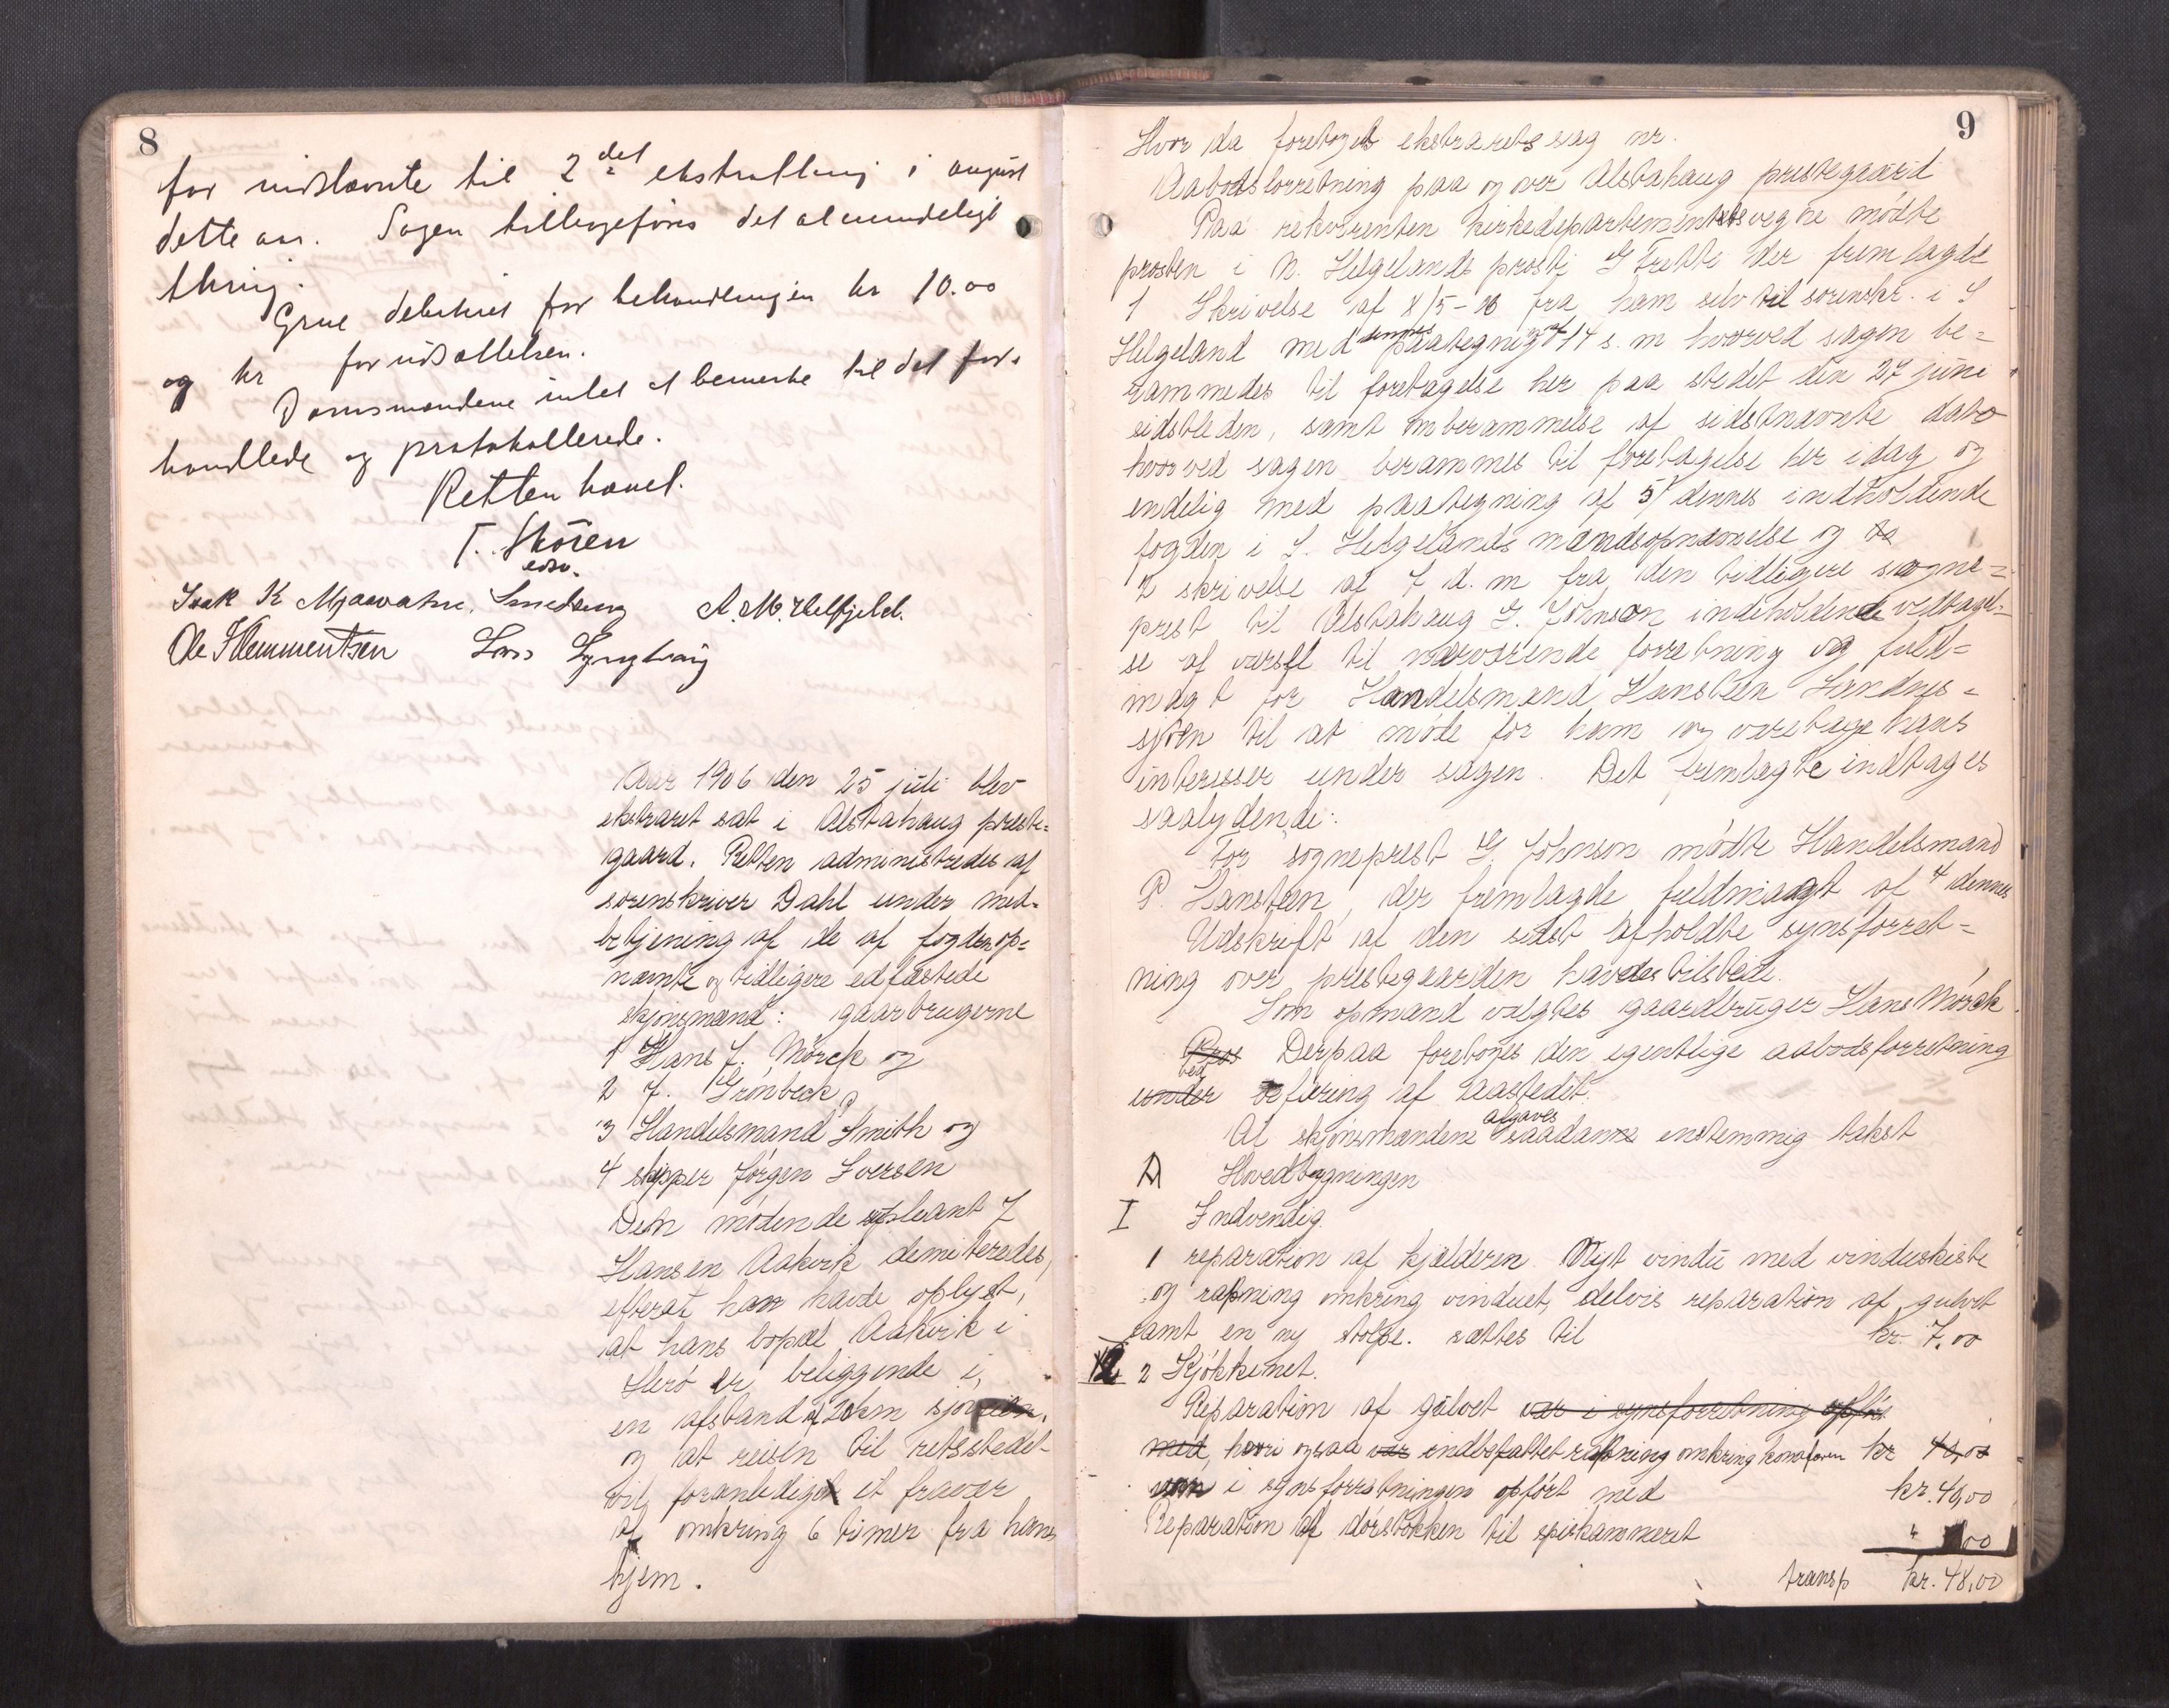 8
for indstævnte til 2det ekstratting i august
dette aar. Sagen tillægeføres det almindelige
thing.
Grue debiteret for behandlingen kr 10.00
og kr for udsættelsen.
Domsmændene intet at bemerke til det for-
handlede og protokollerede.
Retten hævet.
T. Skøien
edsv.
Isak K Mjaavatn. Smedseng A. M. Helfjeld.
Ole Klemmentsen Lars Lyngtveit
Aar 1906 den 25 juli blev
ekstraret sat i Alstahaug preste-
gaard. Retten administredes af
sorenskriver Dahl under med-
betjening af de af fogden op-
nævnte og tidligere edfæstede
skjønsmænd: gaarbrugerne
1 Hans J. Mørck og
2 J. Grønbeck
3 Handelsmand P Smith og
4 skipper Jørgen Iversen
Den mødende supleant Z
Hansen Aakvik demiteredes,
efterat han havde oplyst,
at hans bopæl Aakvik i
Herø er beliggende i
en afstand af 20km sjøveien,
og at reisen til retsstedet
vil foranledige et fravær
af omkring 6 timer fra hans
hjem.
9
Hvor da foretoges ekstraretssag nr.
Aabodsforretning paa og over Alstahaug prestegaard
Paa rekvirenten kirkedepartementets vegne mødte
prosten i N. Helgelands prosti G Tretti der fremlagde
1 Skrivelse af 8/5-06 fra ham selv til sorenskr. i S
Helgeland med dennes paategning af 14 s. m hvorved sagen be-
rammedes til foretagelse her paa stedet den 27 juni
sidstleden, samt omberammelse af sidstnævnte dato
hvorved sagen berammes til foretagelse her idag og
endelig med paategning af 5 dennes indholdende
fogden i S. Helgelands mandsopnævnelse og
2 skrivelse af 7 d. m fra den tidligere sogne-
prest til Alstahaug G. Johnson indeholdende vedtagel-
se af varsel til nærværende forretning og fuld-
magt for Handelsmand Hansteen Sandnes-
sjøen til at møde for ham og varetage hans
interesser under sagen. Det fremlagte indtages
saalydende:
For sogneprest G. Johnson mødte Handelsmand
P. Hansteen, der fremlagde fuldmagt af 4 dennes
Udskrift af den sidst afholdte synsforret-
ning over prestegaarden havdes tilstede.
Som opmand valgtes gaardbruger Hans Mørck.
Pros Derpaa foretoges den egentlige aabodsforretning
under ved befaring af aastedet.
Af skjønsmændene afgaves saadan enstemmig takst
A Hovedbygningen
I Indvendig.
1 reparation af kjælderen. Nyt vindu med vinduskiste
og rapning omkring vinduet, delvis reparation af gulvet
samt en ny stolpe. sættes til kr. 7.00
2 Kjøkkenet.
Reparation af gulvet var i synsforretning opført
med, hvori ogsaa var indbefattet rapning omkring komfuren kr 40,00
som i synsforretningen opført med kr. 40,00
Reparation af dørstokken til spiskammeret " 00
transp kr. 48,00